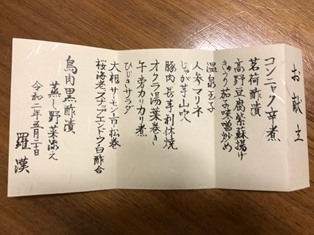 お献立
コンニャク辛煮
茗荷酢漬
高野豆腐紫蘇揚げ
きゅうり茄子味噌炒め
温泉玉子
人参マリネ
じゃが芋山吹
豚肉長芋利休焼
オクラ湯葉巻き
牛蒡カリカリ煮
ひじきサラダ
大根サーモン市松巻
桜海老スナップエンドウ白酢合
鳥肉黒酢漬
蒸し野菜添え
令和二年五月二日
羅漢